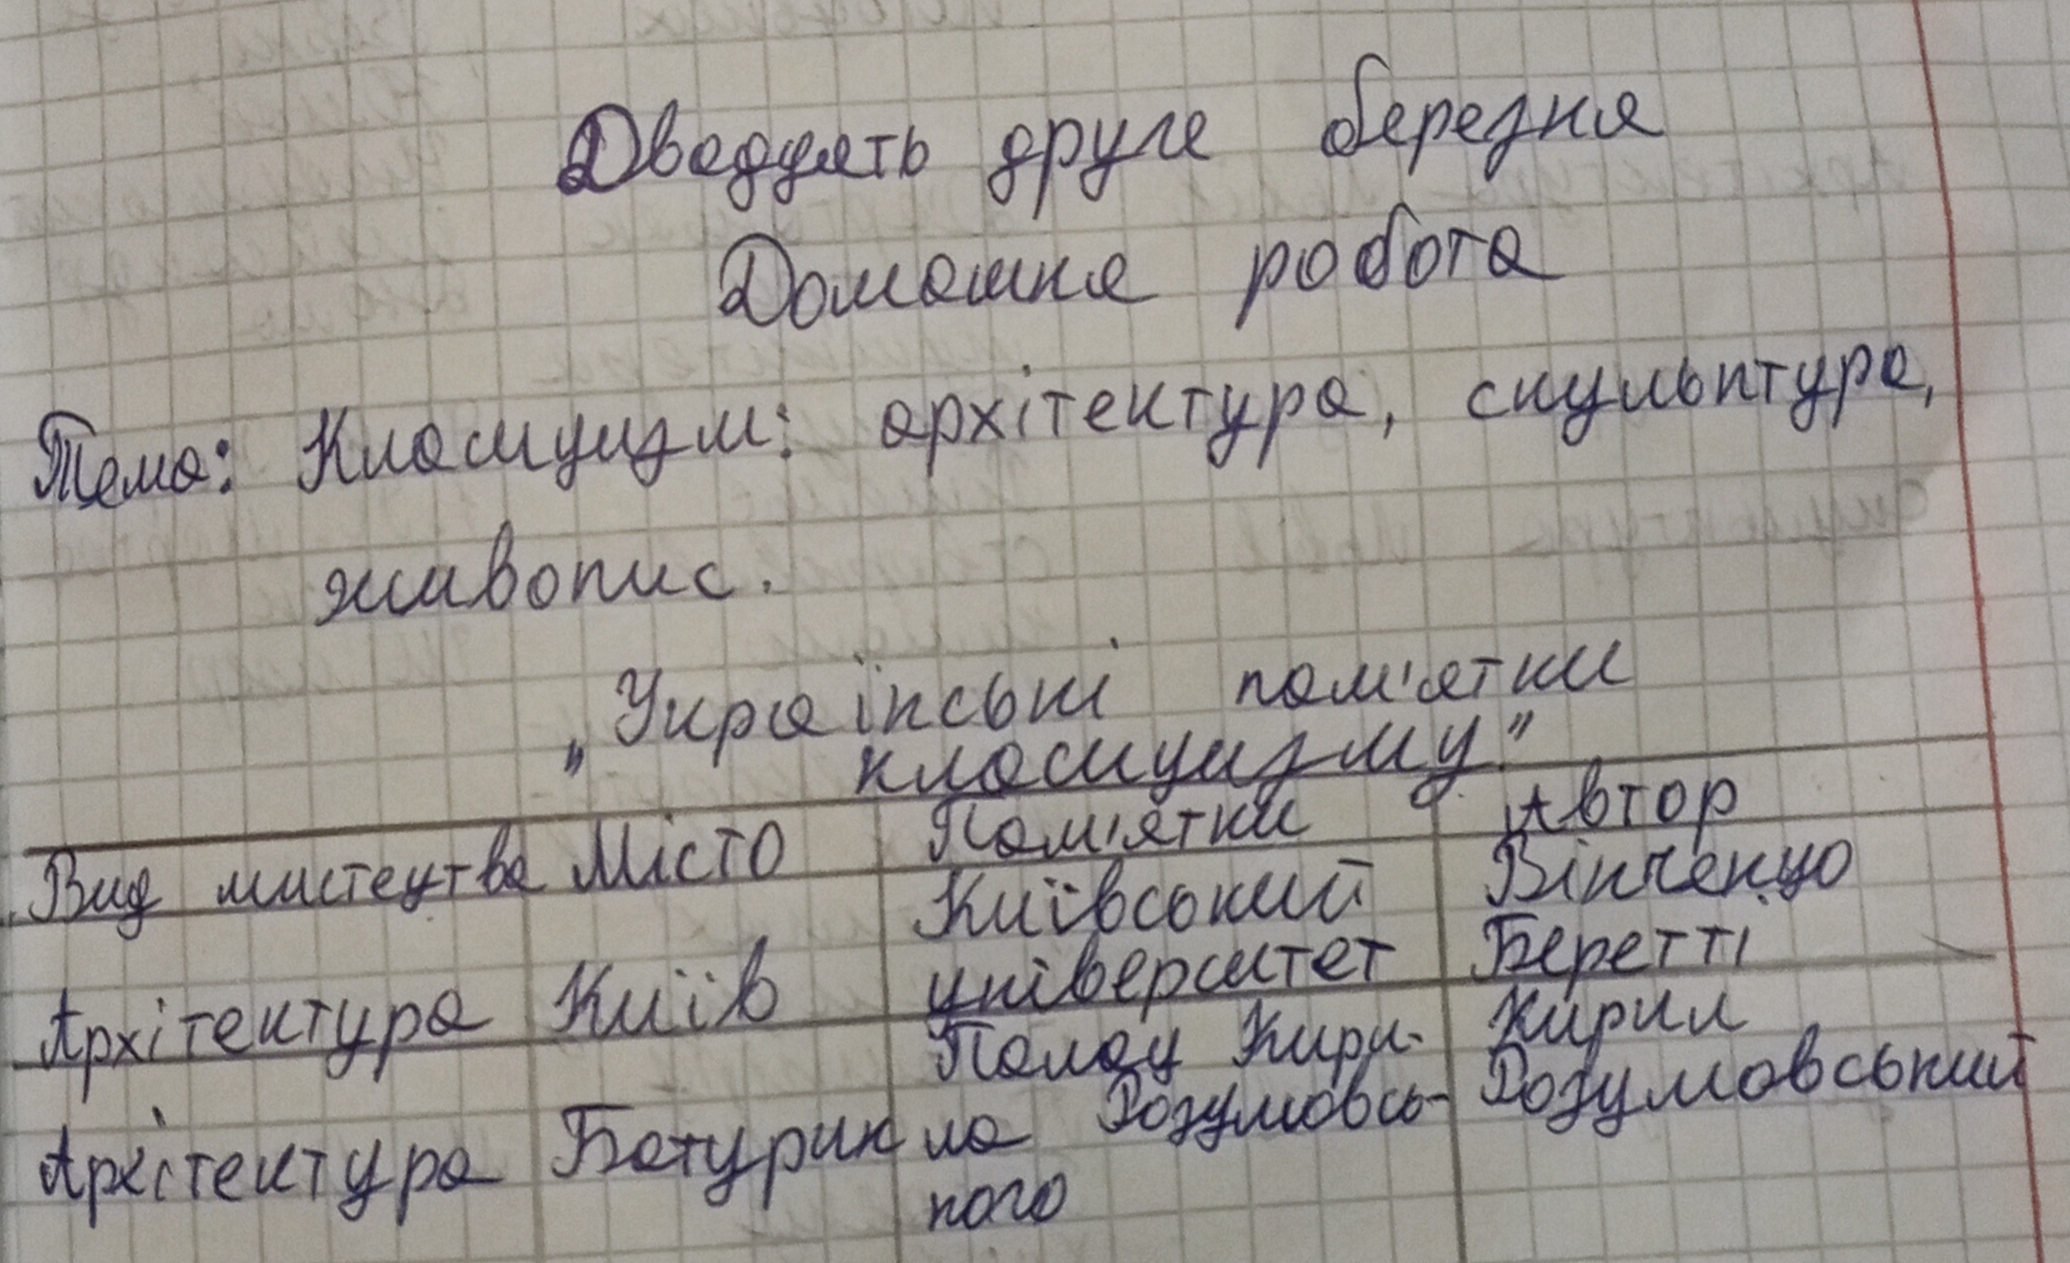 Двадцять друге березня
Домашня робота
Тема: Класицизм: архітектура, скульптура,
живопис.
„Українські пам'ятки
класицизму."
Вид мистецтва Місто Пам'ятки Автор
Архітектура Київ Київський університет Вінченцо Беретті
Архітектура Батурин Палац Кири-
ла Розумовсь-
кого Кирил Розумовський